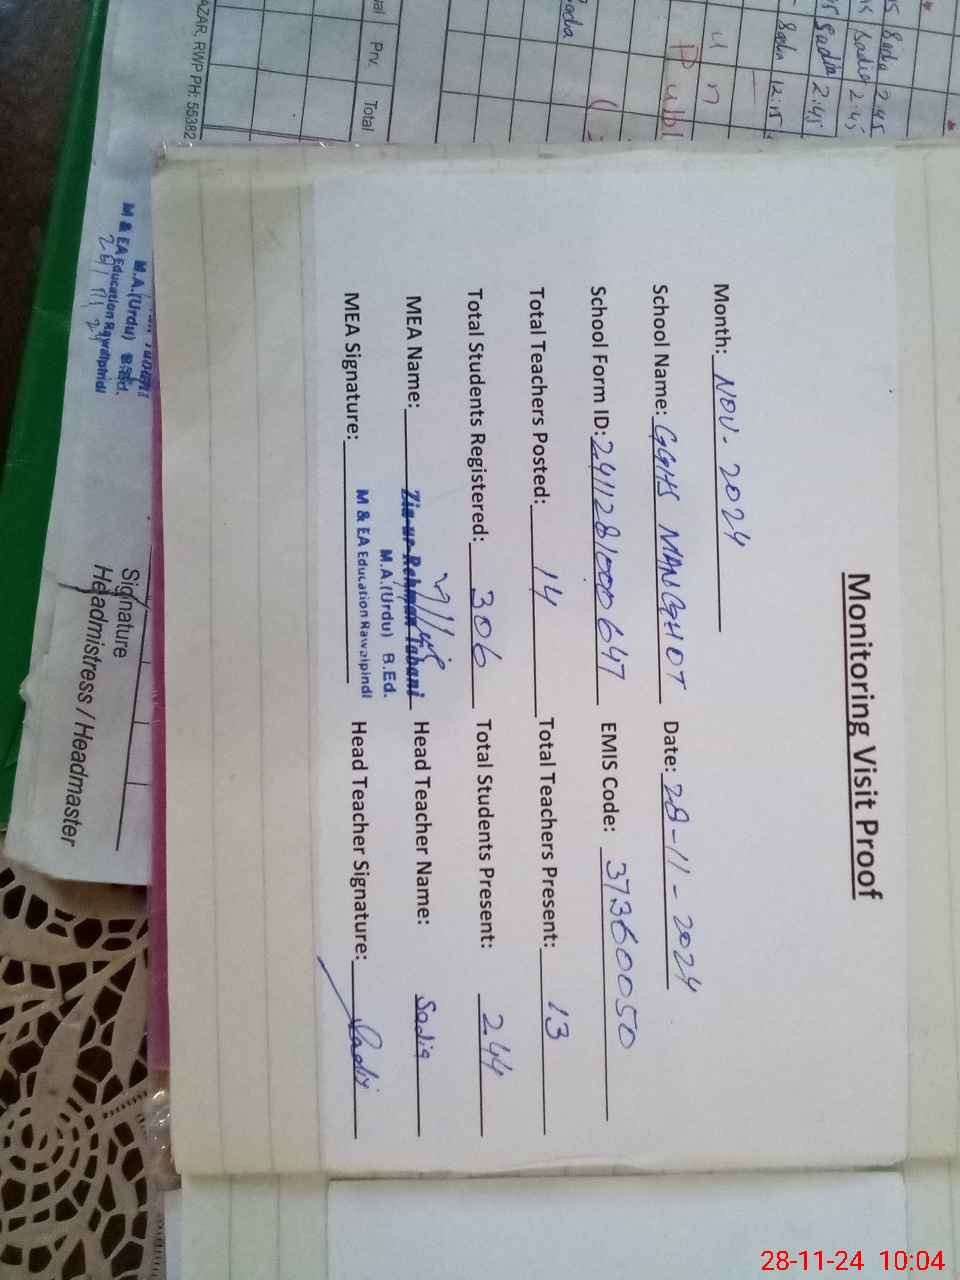 Monitoring Visit Proof
Month: NOV- 2024
School Name: GGHS MANGHOT Date: 28-11-2024
School Form ID: 2411281000647 EMIS Code: 37360050
Total Teachers Posted: 14 Total Teachers Present: 13
Total Students Registered: 306 Total Students Present: 244
MEA Name: Zia-ur-Rehman Tabani Head Teacher Name: Sadia
M.A.(Urdu) B.Ed.
M & EA Education Rawalpindi
MEA Signature: Head Teacher Signature: Sadia
Tabani
M.A.(Urdu) B.Ed.
M & EA Education Rawalpindi
28/11/24
Signature
Headmistress / Headmaster
AZAR, RWP PH: 55382
Prv.
Total
Sadia 2:45
Sadia 2:45
Sadia 2:45
Sadia 12:15
28-11-24 10:04